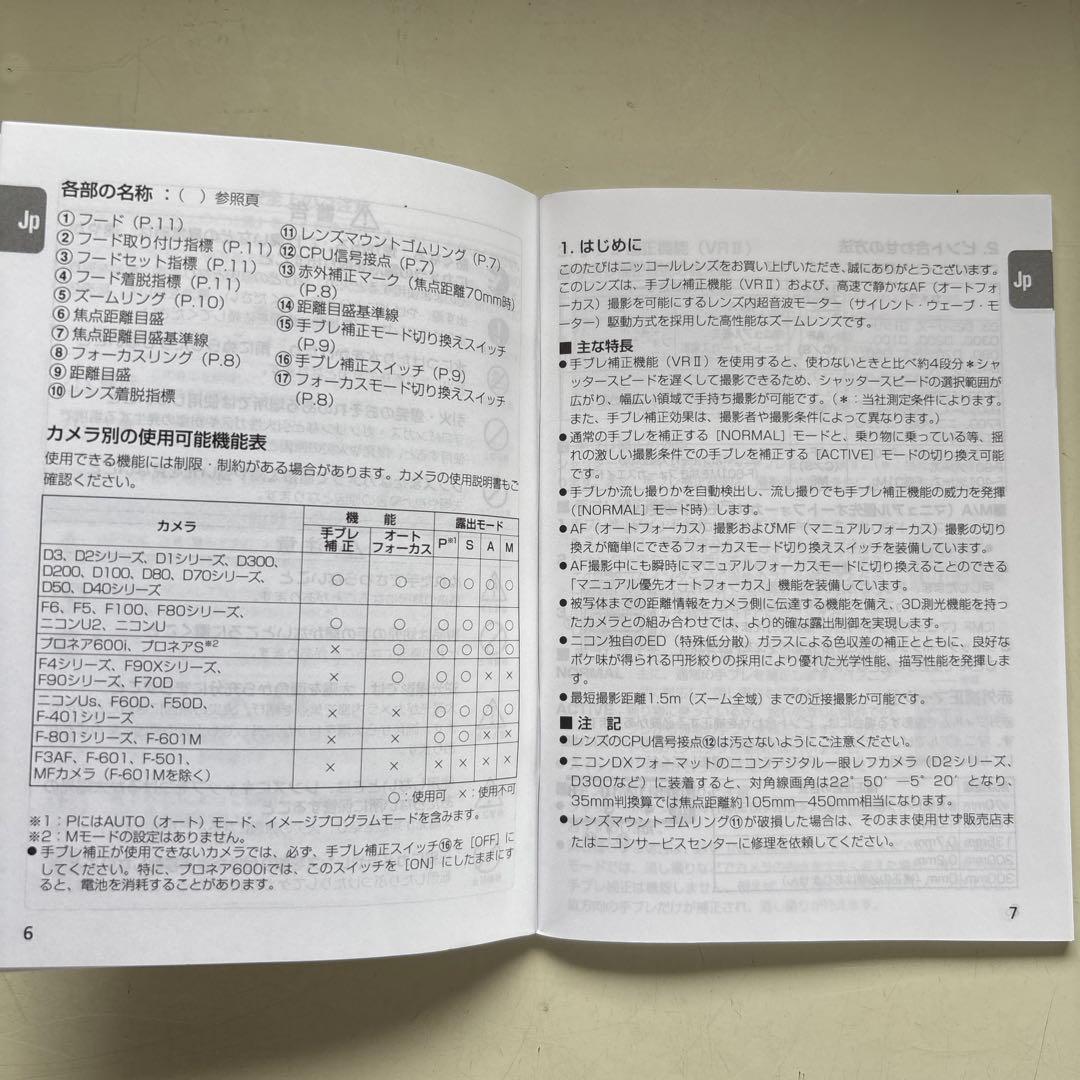 Jp
各部の名称 ：（　）参照頁
①フード（P.11）
②フード取り付け指標（P.11）
③フードセット指標（P.11）
④フード着脱指標（P.11）
⑤ズームリング（P.10）
⑥焦点距離目盛
⑦焦点距離目盛基準線
⑧フォーカスリング（P.8）
⑨距離目盛
⑩レンズ着脱指標
⑪レンズマウントゴムリング（P.7）
⑫CPU信号接点（P.7）
⑬赤外補正マーク（焦点距離70mm時）
（P.8）
⑭距離目盛基準線
⑮手ブレ補正モード切り換えスイッチ
（P.9）
⑯手ブレ補正スイッチ（P.9）
⑰フォーカスモード切り換えスイッチ
（P.8）
カメラ別の使用可能機能表
使用できる機能には制限・制約がある場合があります。カメラの使用説明書もご
確認ください。
カメラ 機　能 露出モード
手ブレ補正 オートフォーカス P※1 S A M
D3、D2シリーズ、D1シリーズ、D300、
D200、D100、D80、D70シリーズ、
D50、D40シリーズ ○ ○ ○ ○ ○ ○
F6、F5、F100、F80シリーズ、
ニコンU2、ニコンU ○ ○ ○ ○ ○ ○
プロネア600i、プロネアS※2 × ○ ○ ○ ○ ○
F4シリーズ、F90Xシリーズ、
F90シリーズ、F70D × ○ ○ ○ × ×
ニコンUs、F60D、F50D、
F-401シリーズ × × ○ ○ ○ ○
F-801シリーズ、F-601M × × ○ ○ × ×
F3AF、F-601、F-501、
MFカメラ（F-601Mを除く） × × × × × ×
○：使用可 ×：使用不可
※1：PにはAUTO（オート）モード、イメージプログラムモードを含みます。
※2：Mモードの設定はありません。
●手ブレ補正が使用できないカメラでは、必ず、手ブレ補正スイッチ⑯を［OFF］に
してください。特に、プロネア600iでは、このスイッチを［ON］にしたままにす
ると、電池を消耗することがあります。
6
Jp
1. はじめに
このたびはニッコールレンズをお買い上げいただき、誠にありがとうございます。
このレンズは、手ブレ補正機能（VRⅡ）および、高速で静かなAF（オートフォ
ーカス）撮影を可能にするレンズ内超音波モーター（サイレント・ウェーブ・モ
ーター）駆動方式を採用した高性能なズームレンズです。
■ 主な特長
●手ブレ補正機能（VRⅡ）を使用すると、使わないときと比べ約4段分＊シャ
ッタースピードを遅くして撮影できるため、シャッタースピードの選択範囲が
広がり、幅広い領域で手持ち撮影が可能です。（＊：当社測定条件によります。
また、手ブレ補正効果は、撮影者や撮影条件によって異なります。）
●通常の手ブレを補正する［NORMAL］モードと、乗り物に乗っている等、揺
れの激しい撮影条件での手ブレを補正する［ACTIVE］モードの切り換え可能
です。
●手ブレか流し撮りかを自動検出し、流し撮りでも手ブレ補正機能の威力を発揮
（［NORMAL］モード時）します。
●AF（オートフォーカス）撮影およびMF（マニュアルフォーカス）撮影の切り
換えが簡単にできるフォーカスモード切り換えスイッチを装備しています。
●AF撮影中にも瞬時にマニュアルフォーカスモードに切り換えることのできる
「マニュアル優先オートフォーカス」機能を装備しています。
●被写体までの距離情報をカメラ側に伝達する機能を備え、3D測光機能を持っ
たカメラとの組み合わせでは、より的確な露出制御を実現します。
●ニコン独自のED（特殊低分散）ガラスによる色収差の補正とともに、良好な
ボケ味が得られる円形絞りの採用により優れた光学性能、描写性能を発揮しま
す。
●最短撮影距離1.5m（ズーム全域）までの近接撮影が可能です。
■ 注　記
●レンズのCPU信号接点⑫は汚さないようにご注意ください。
●ニコンDXフォーマットのニコンデジタル一眼レフカメラ（D2シリーズ、
D300など）に装着すると、対角線画角は22°50′—5°20′となり、
35mm判換算では焦点距離約105mm—450mm相当になります。
●レンズマウントゴムリング⑪が破損した場合は、そのまま使用せず販売店ま
たはニコンサービスセンターに修理を依頼してください。
7